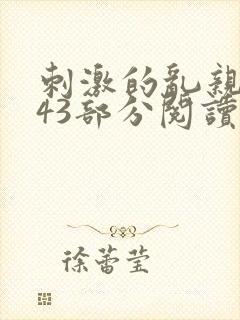 刺激的亂親
43部分閱讀
徐蕾莹